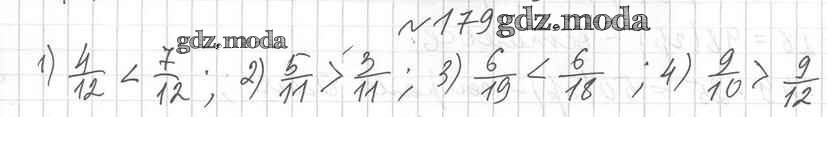 №179 gdz.moda
gdz.moda
1) 4/12 < 7/12; 2) 5/11 > 3/11; 3) 6/19 < 6/18; 4) 9/10 > 9/12